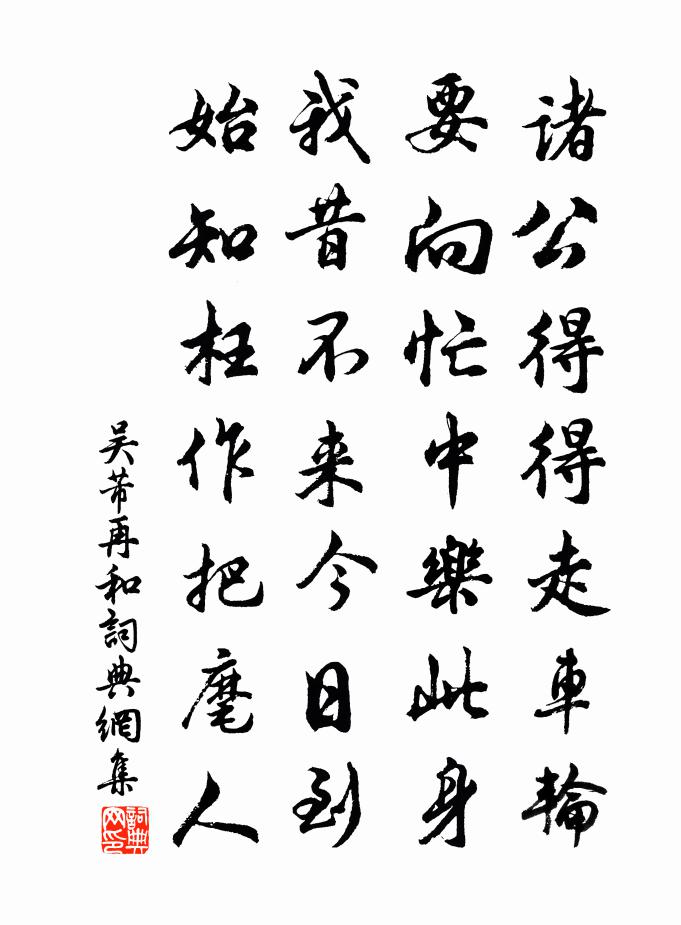 諸公得得走車輪
要向忙中樂此身
我昔不来今日到
始知枉作把麾人
吴芾再和詞典網集
詞典网印